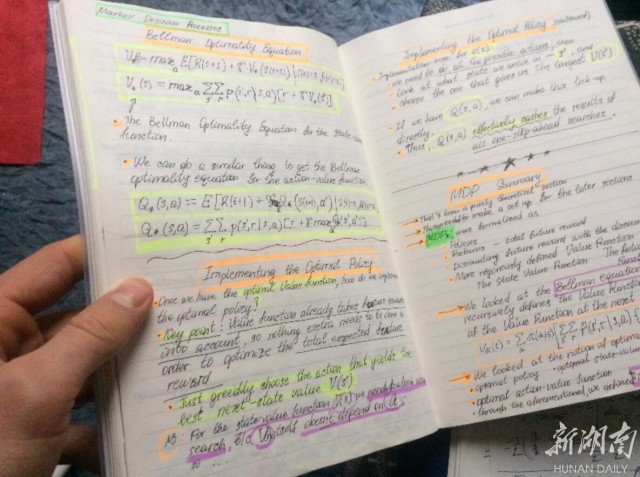 Markov Decision Processes
Bellman Optimality Equation
V*(s) = max_a E[R(t+1) + γ V*(S(t+1)) |
V*(s) = max_a Σ Σ p(s',r|s,a)[r + γ V*(s')]
s' r
The Bellman Optimality Equation for the state-value
function.
We can do a similar thing to get the Bellman
optimality equation for the action-value function
Q*(s,a) = E[R(t+1) + γ Q*(S(t+1),a')|
Q*(s,a) = Σ Σ p(s',r|s,a)[r + γ max Q*(s',a')]
s' r
Implementing the Optimal Policy
Once we have the optimal Value function, how do we implement
the optimal policy?
Key point: Value function already takes future reward
into account, so nothing extra needs to be done
order to optimize the total expected future
reward
Just greedily choose the action that yields the
best next-state value V(s')
For the state value function V(s) you
search, b/c doesn't depend on a
so ...
Implementing the Optimal Policy (continued)
Implementation for V(s)
we need to do all the possible actions, then
look at what state we arrive in s', and
choose the one that gives us the largest V(s')
If we have Q(s,a), we can make this look-up
directly.
Thus, Q(s,a) effectively caches the results of
all one-step-ahead searches.
MDP Summary
That's been a purely theoretical section
need to make a set up for the later sections
MDPs were formalized as
Policies
Returns - total future reward
Discounting future reward with the discount
More rigorously defined Value Function
The State Value Function The Action
We looked at the Bellman equation
recursively defines the Value Function
of the Value Function at the next
We looked at the notion of optimal
optimal policy - optimal state-value
optimal action-value function
through the aforementioned, we
新湖南
HUNAN DAILY